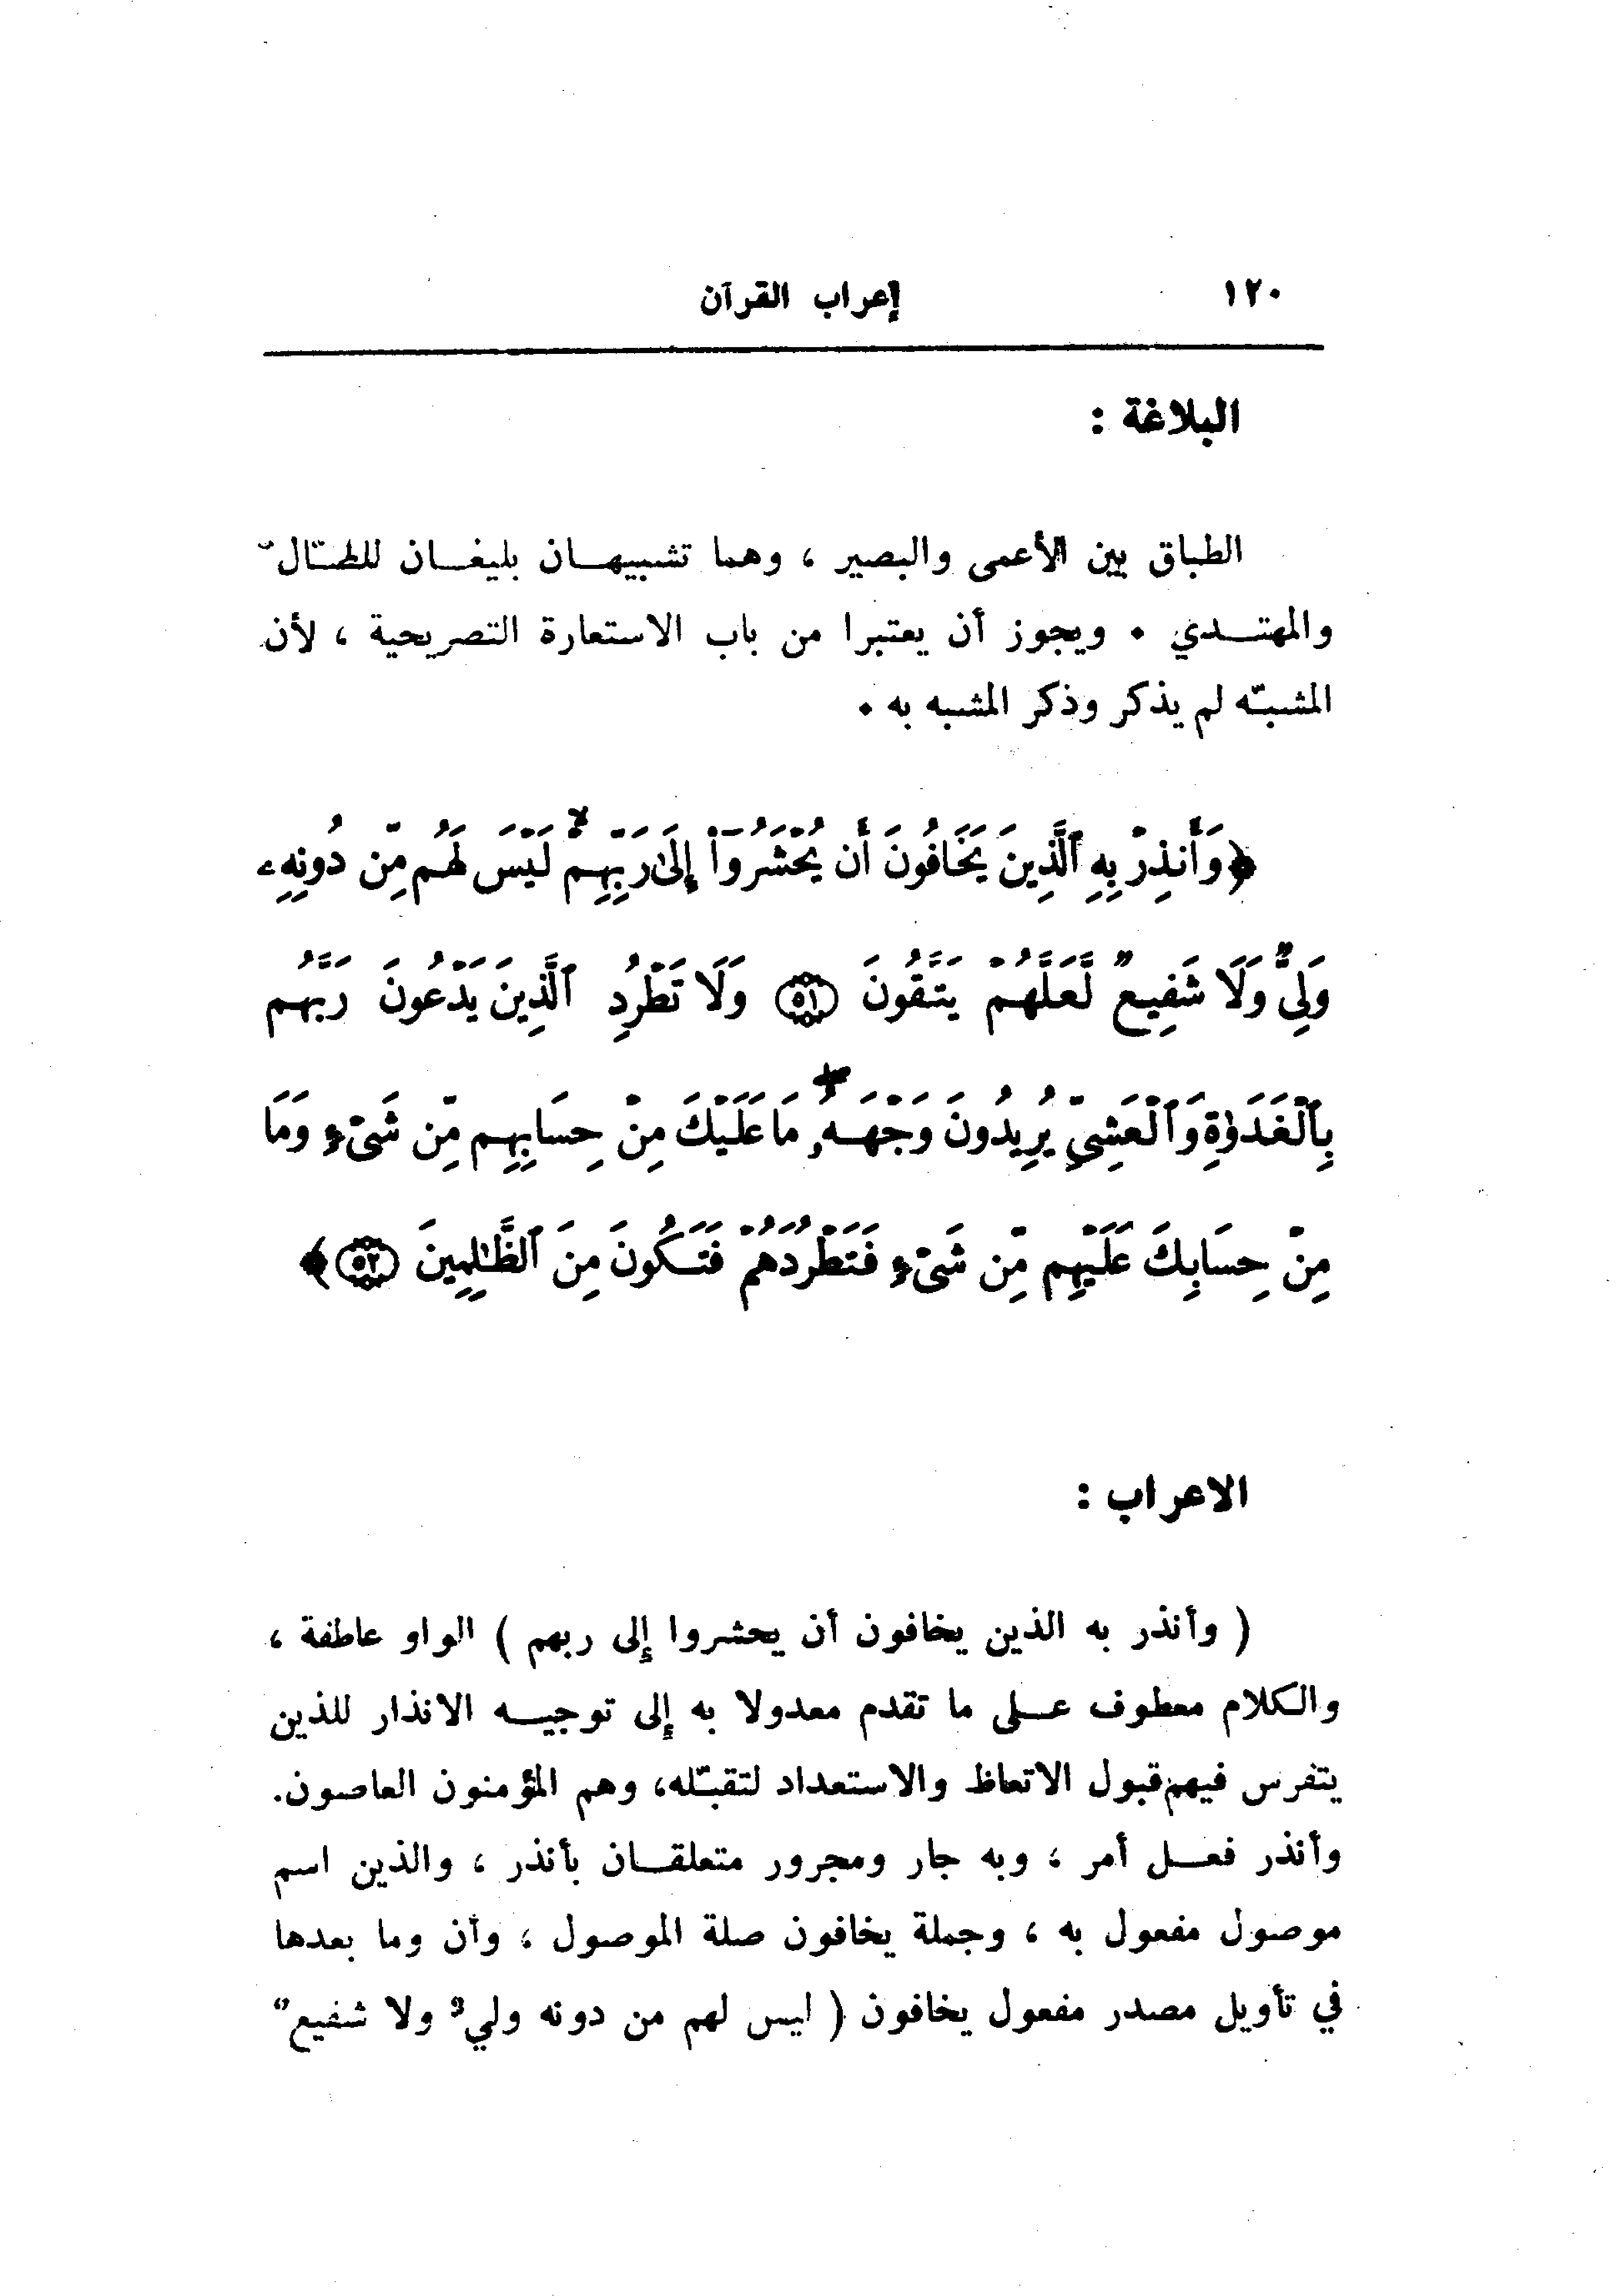 ١٢٠ إعراب القرآن
البلاغة :
الطباق بين الأعمى والبصير ، وهما تشبيهان بليغان للضّالّ
والمهتدي . ويجوز أن يعتبرا من باب الاستعارة التصريحية ، لأن
المشبّه لم يذكر وذكر المشبه به .
﴿وَأَنذِرْ بِهِ ٱلَّذِينَ يَخَافُونَ أَن يُحْشَرُوٓا۟ إِلَىٰ رَبِّهِمْ ۙ لَيْسَ لَهُم مِّن دُونِهِۦ
وَلِىٌّ وَلَا شَفِيعٌ لَّعَلَّهُمْ يَتَّقُونَ (٥١) وَلَا تَطْرُدِ ٱلَّذِينَ يَدْعُونَ رَبَّهُم
بِٱلْغَدَوٰةِ وَٱلْعَشِىِّ يُرِيدُونَ وَجْهَهُۥ ۖ مَا عَلَيْكَ مِنْ حِسَابِهِم مِّن شَىْءٍ وَمَا
مِنْ حِسَابِكَ عَلَيْهِم مِّن شَىْءٍ فَتَطْرُدَهُمْ فَتَكُونَ مِنَ ٱلظَّـٰلِمِينَ (٥٢)﴾
الاعراب :
( وأنذر به الذين يخافون أن يحشروا إلى ربهم ) الواو عاطفة ،
والكلام معطوف على ما تقدم معدولا به إلى توجيه الانذار للذين
يتفرس فيهم قبول الاتعاظ والاستعداد لتقبّله، وهم المؤمنون العاصون.
وأنذر فعل أمر ، وبه جار ومجرور متعلقان بأنذر ، والذين اسم
موصول مفعول به ، وجملة يخافون صلة الموصول ، وأن وما بعدها
في تأويل مصدر مفعول يخافون ( ليس لهم من دونه وليٌ ولا شفيعٌ